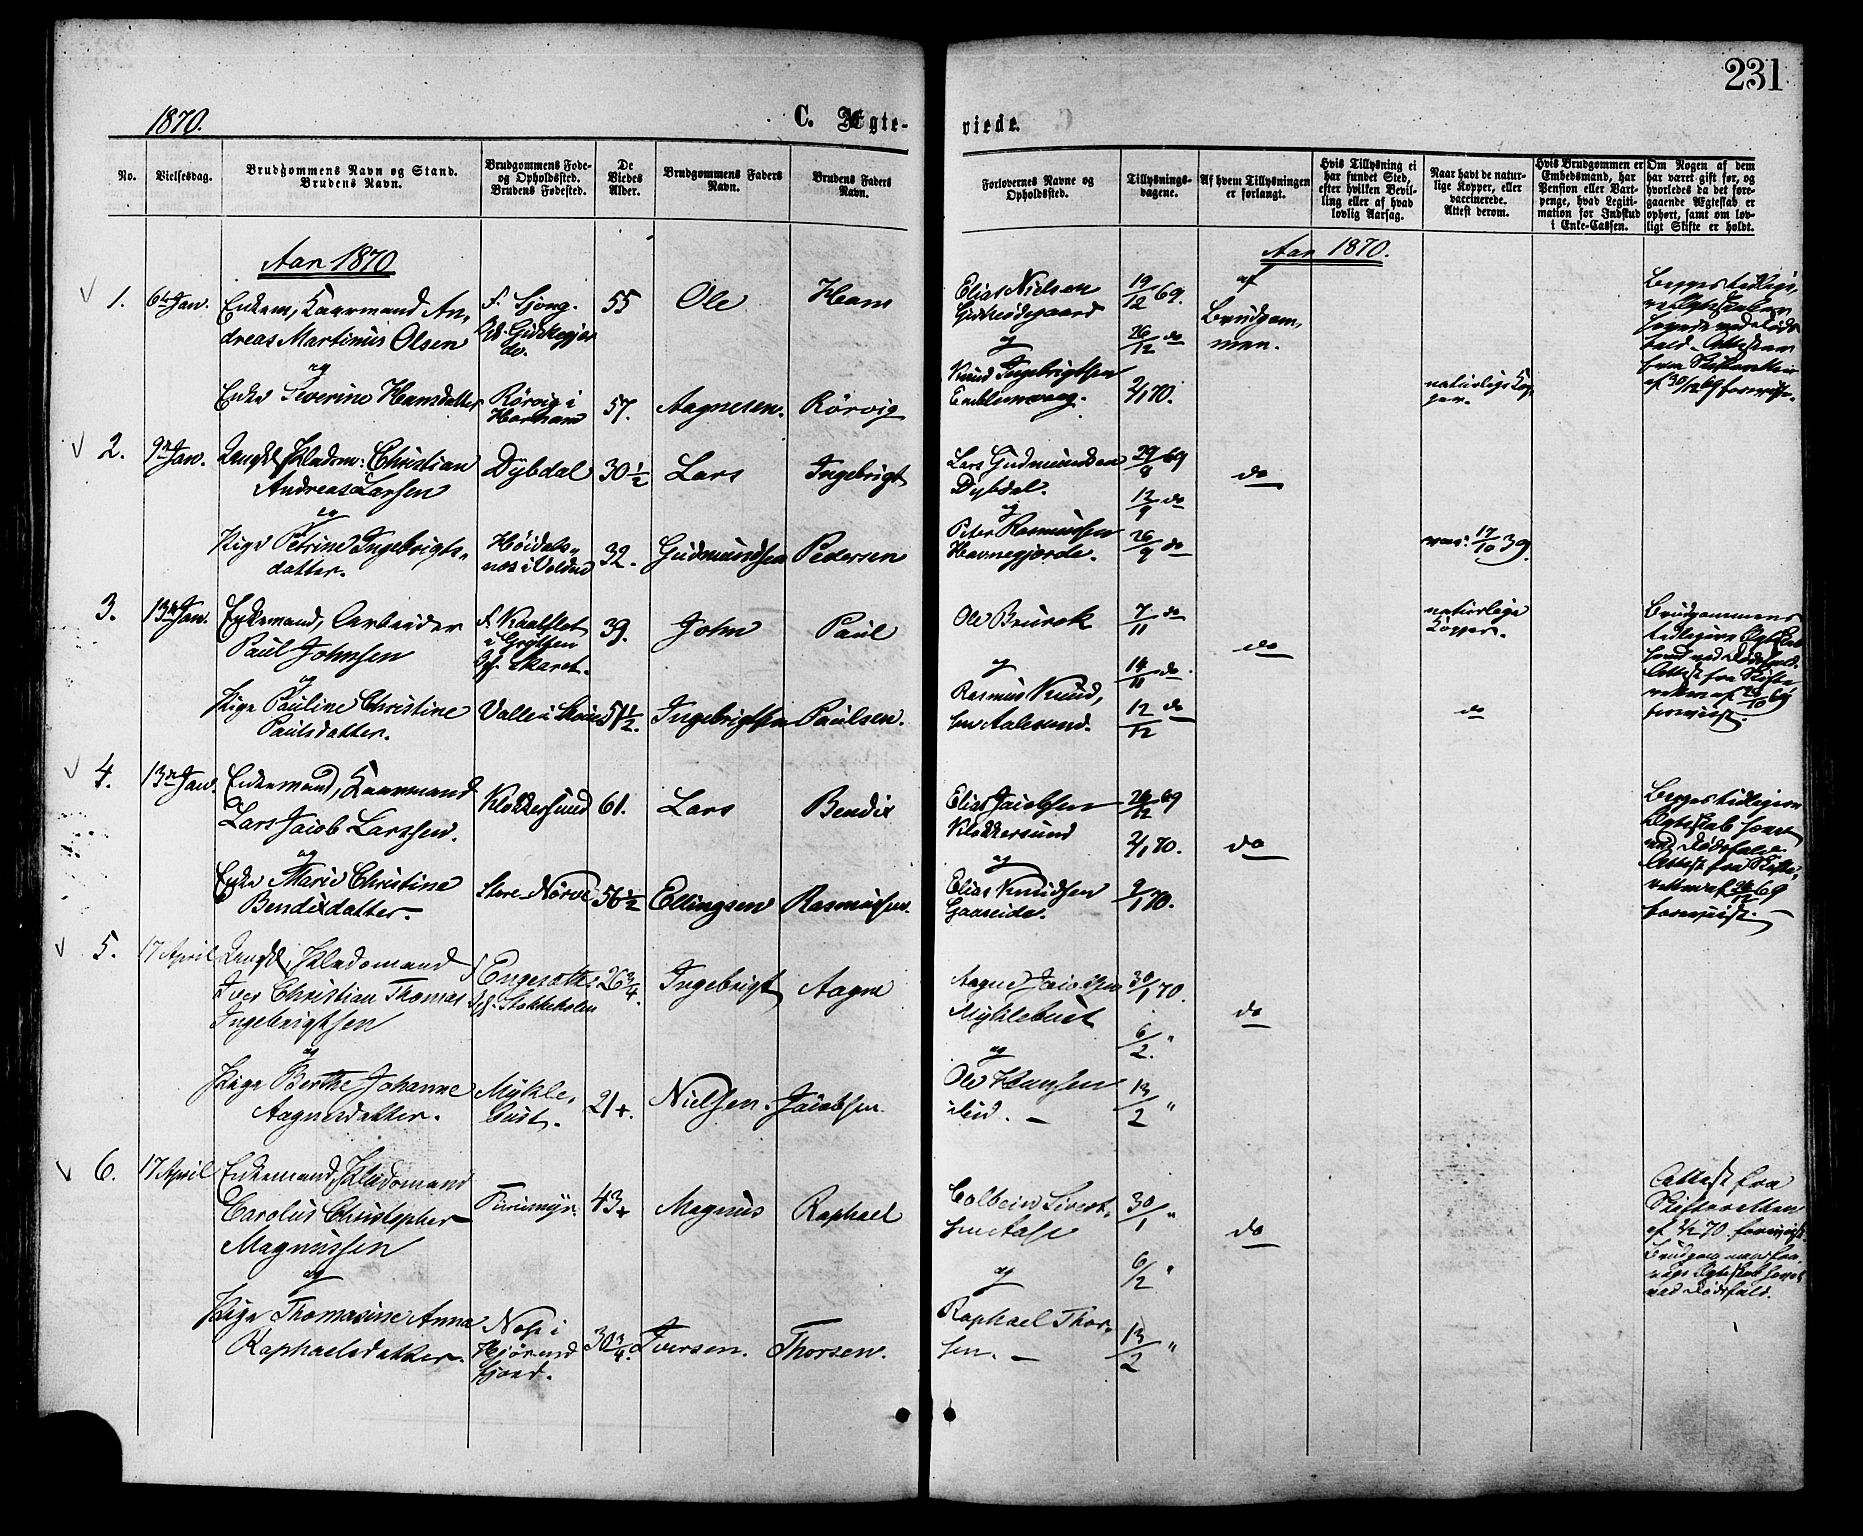 231
1870.
C. Ægte-
viede.
No.
Vielsesdag.
Brudgommens Navn og Stand.
Brudens Navn.
Brudgommens Føde-
og Opholdssted.
Brudens Fødested.
De
Viedes
Alder.
Brudgommens Faders
Navn.
Brudens Faders
Navn.
Forlovernes Navne og
Opholdssted.
Tillysnings-
dagene.
Af hvem Tillysningen
er forlangt.
Hvis Tillysning ei
har fundet Sted,
efter hvilken Bevil-
ling eller af hvad
lovlig Aarsag.
Naar havt de natur-
lige Kopper, eller
vaccinerede.
Attest derom.
Hvis Brudgommen er
Embedsmand, har
Pension eller Vart-
penge, hvad Legiti-
mation for Indskud
i Enke-Cassen.
Om Nogen af dem
har været gift før, og
hvorledes da det fore-
gaaende Ægteskab er
ophørt, samt om lov-
ligt Skifte er holdt.
Aar 1870
Aar 1870.
1.
6te Jan.
Enkem, Kaarmand An-
dreas Martinus Olsen
og
Enke Severine Hansdatter
Rörvig i
Harham
55
57.
Ole
Aagnesen.
Hans
Rörvig
Elias Nielsen
og
Knud Ingebrigtsen
Emblemsvaag.
19/12 69.
26/12 do
2/1 70.
af
Brudgom-
men.
naturlige Kop-
per.
Begges tidlige-
re Ægteskaber
hævede ved Døds-
fald. Attester
fra Skifteretten
2.
9de Jan.
Ungkl Selvom: Christian
Andreas Larsen
og
Pige Petrine Ingebrigts-
datter.
Dybdal
Höidals-
næs i Volden
30 1/2
32.
Lars
Gudmundsen
Ingebrigt
Pedersen
Lars Gudmundsen
Dybdal.
og
Peter Rasmussen
Havnegjerde.
29/8 69
12/9 do
26/9 do
do
vac: 17/10 39.
3.
13de Jan.
Enkemand, Arbeider
Paul Johnsen
og
Pige Pauline Christine
Paulsdatter.
39.
51 1/2.
John
Ingebrigtsen
Paul
Paulsen.
Ole
og
Rasmus Knud-
sen Aalesund.
7/11 do
14/11 do.
12/12 do
do
naturlige
Kopper.
do
Brudgommens
tidligere Ægteskab
hævet ved Dödsfald.
Attest fra Skifte-
retten af
forevist.
4.
13de Jan.
Enkemand, Kaarmand
Lars Jacob Larssen.
og
Enke Marie Christine
Bendixdatter.
Klokkersund
Store Nörve
61.
56 1/2
Lars
Ellingsen
Bendix
Rasmussen.
Elias Jacobsen
Klokkersund
og
Elias Knudsen
Gaaseide.
26/12 69
2/1 70.
9/1 70.
do
Begges tidligere
Ægteskab hævet
ved Dödsfald
Attest fra Skifte-
retten af 69
forevist.
5.
17 April
Ungkl, Selvomand
Iver Christian Thomas
Ingebrigtsen
og
Pige Berthe Johanne
Aagnesdatter.
Mykle-
bust.
26 3/4.
21+.
Ingebrigt
Nielsen.
Aagne
Jacobsen.
Aagne Jacobsen
Myklebust
og
Ole Hansen
30/1 70.
6/2. "
13/2 "
do
6.
17 April
Enkemand, Selvomand
Carolus Christopher
Magnussen
og
Pige Thomasine Anna
Raphaelsdatter.
Furemyr.
i
Hjörend
fjord.
43+
30 3/4.
Magnus
Iversen.
Raphael
Thorsen.
Colbein Sivert-
sen
og
Raphael Thor-
sen.
30/1 "
6/2 "
13/2 "
do
Attest fra
Skifteretten
forevist.
ved Dödsfald.